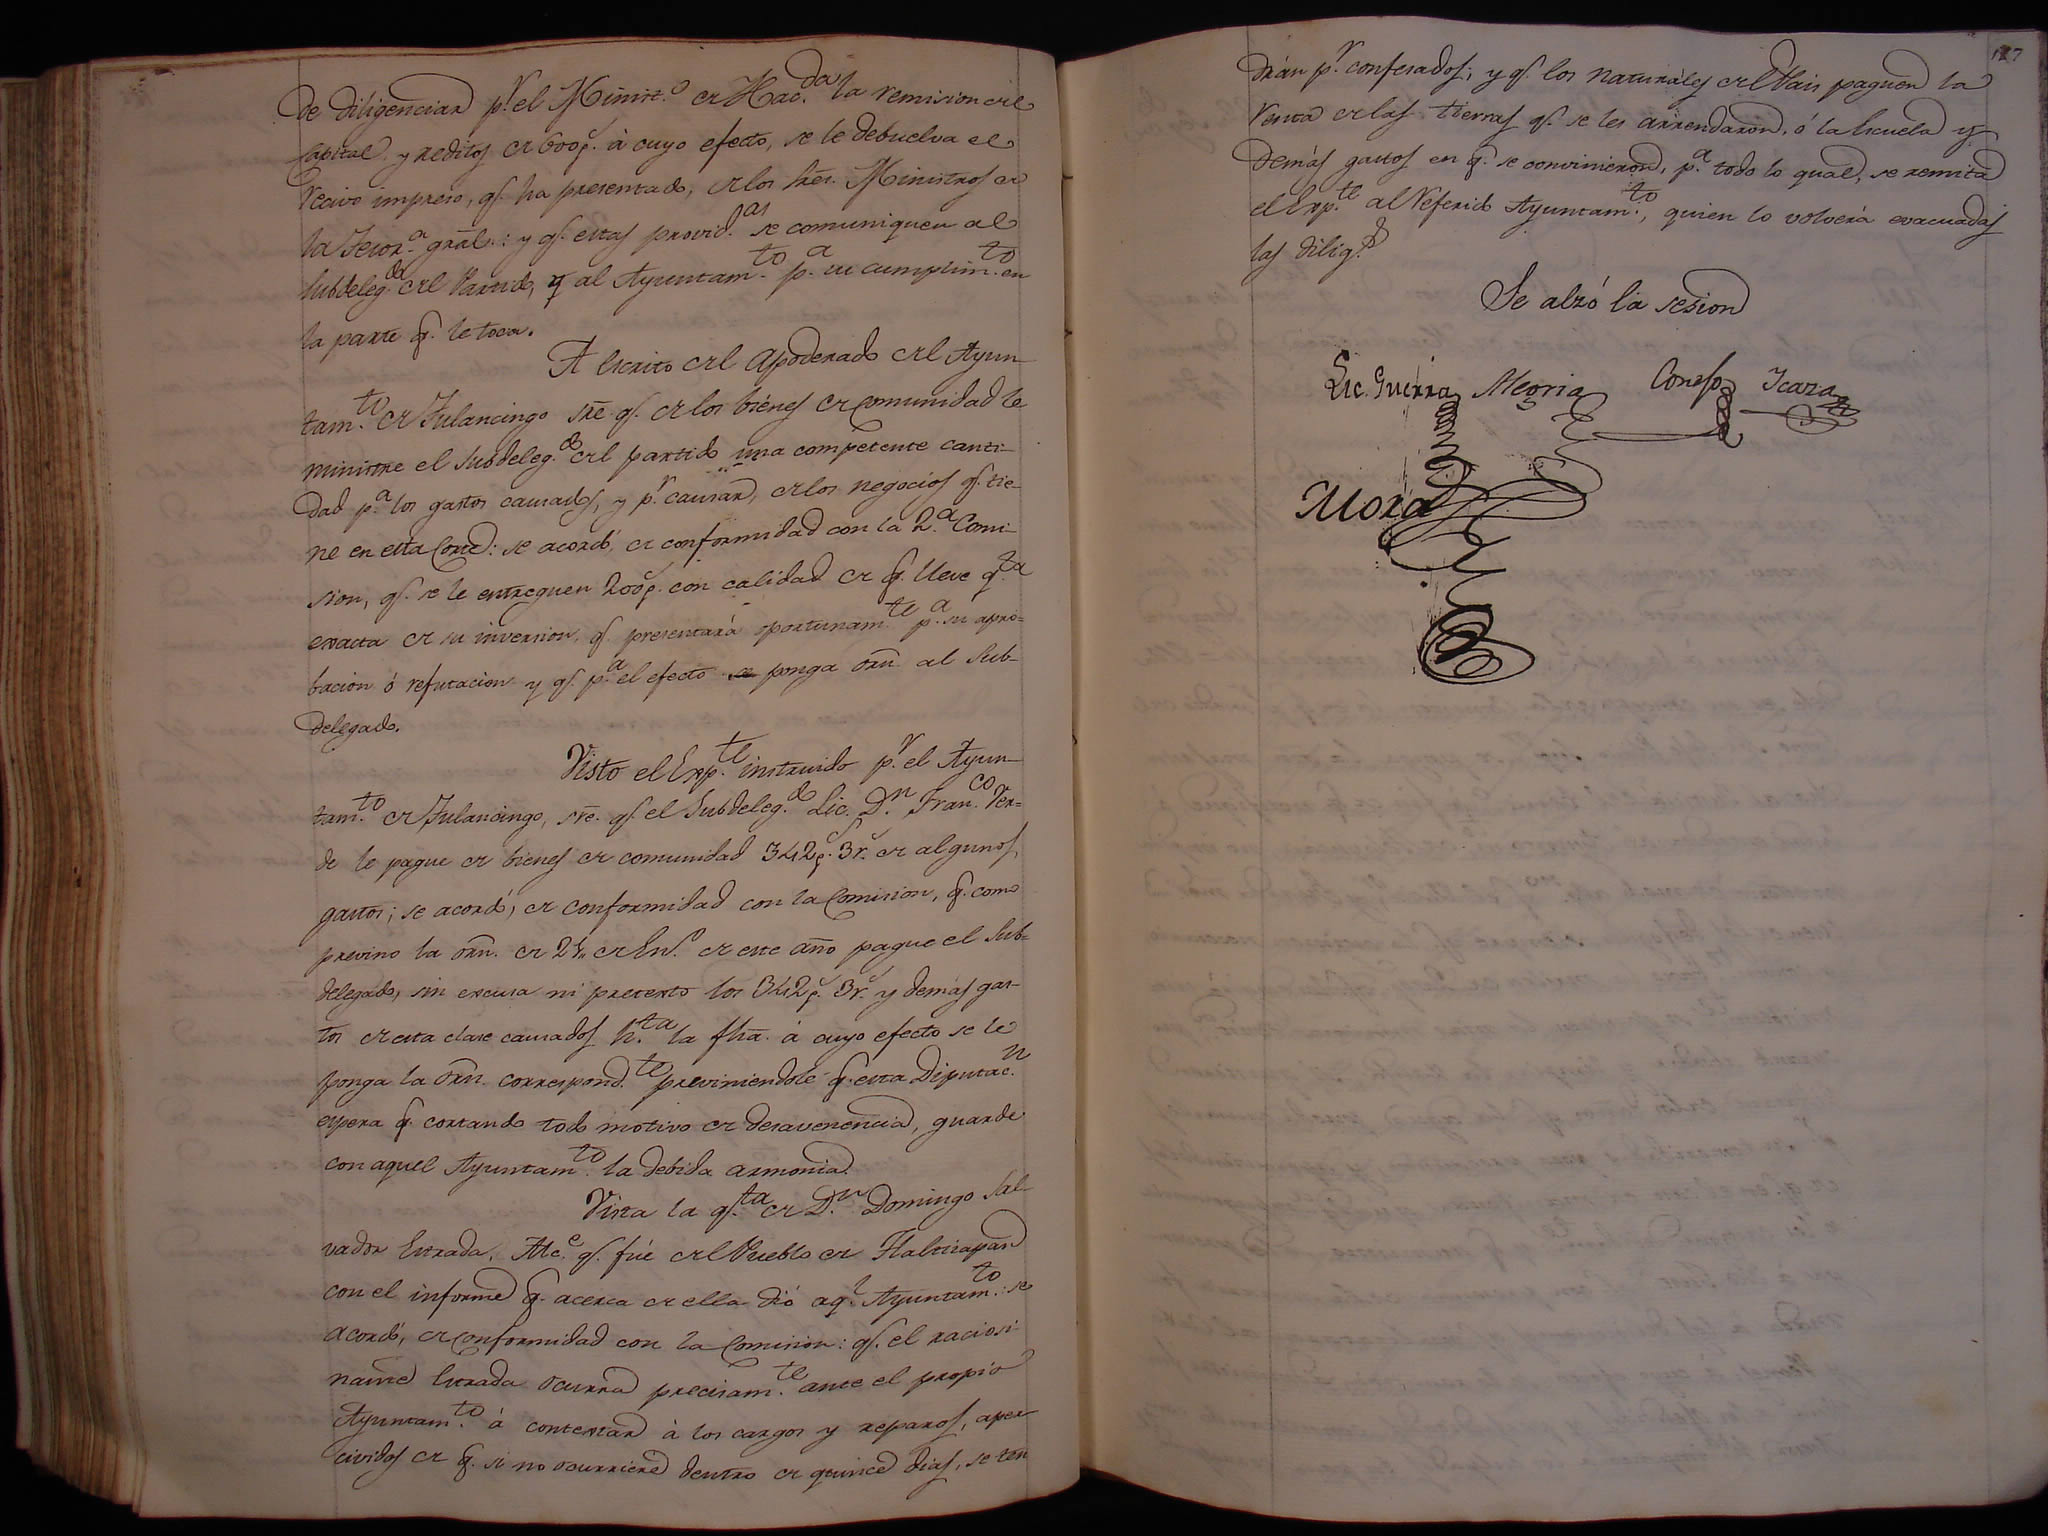 de diligenciar p.r el Minist.o de Hac.da la remision del
Capital y reditos de 600p.s à cuyo efecto, se le debuelva el
recivo impreso, q.e ha presentado, de los Sres. Ministros de
la Tesor.a gral.: y q.e estas provid.as se comuniquen al
Subdeleg.do del Partido, y al Ayuntam.to p.a su cumplim.to en
la parte q.e le toca.
A Escrito del Apoderado del Ayun-
tam.to de Tulancingo sre. q.e de los biénes de comunidad le
ministre el Subdeleg.do del partido una competente canti-
dad p.a los gastos causados, y p.r causar, de los negocios q.e tie-
ne en esta Corte: se acordó, de conformidad con la 2.a Comi-
sion, q.e se le entreguen 200p.s con calidad de q.e lleve q.ta
exacta de su inversion, q.e presentará oportunam.te p.a su apro-
bacion ó refutacion y q.e p.a el efecto se ponga orñ. al Sub-
delegado.
Visto el Exp.te instruido p.r el Ayun-
tam.to de Tulancingo, sre. q.e el Subdeleg.do Lic. D.n Fran.co Ver-
de le pague de bienes de comunidad 342p.s 3r.s de algunos
gastos; se acordó, de conformidad con la Comision, q.e como
previno la orñ. de de En.o de este año pague el Sub-
delegado, sin excusa ni pretexto los 342p.s 3r.s y demás gas-
tos de esta clase causados h.ta la fha. á cuyo efecto se le
ponga la orñ. correspond.te previniendole q.e esta Diputac.n
espera q.e cortando todo motivo de desavenencia, guarde
con aquel Ayuntam.to la debida armonia.
Vista la q.ta de D.n Domingo Sal-
vador Estrada, Alc.e q.e fué del Pueblo de
con el informe q.e acerca de ella dió aq.l Ayuntam.to: se
acordó, de conformidad con la Comision: q.e el raciosi-
nante Estrada ocurra precisam.te ante el propio
Ayuntam.to á contestar à los cargos y reparos, aper-
cividos de q.e si no ocurriere dentro de quince dias, se ten
127
drán p.r confesados; y q.e los naturáles del Pais paguen la
renta de las tierras q.e se les arrendaron, ó la Escuela y
demás gastos en q.e se convinieron, p.a todo lo qual, se remita
el Exp.te al referido Ayuntam.to, quien lo volverá evacuadas
las dilig.s
Se alzó la sesion
Lic. Guerra Alegria Conejo Icaza
Mora